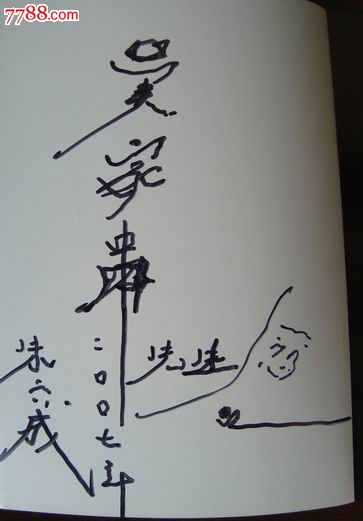 7788.com
吴家
先生
二〇〇七年
朱六成